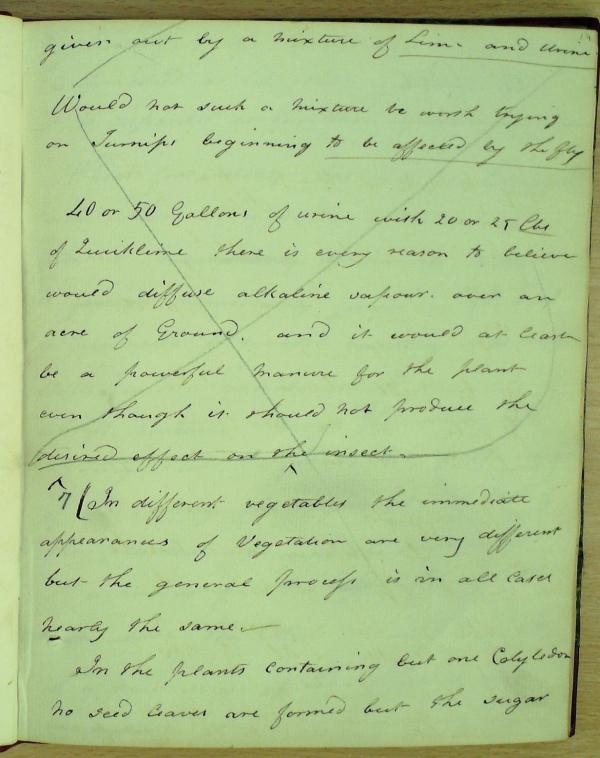 given out by a mixture of Lime and Urine
Would not such a mixture be worth trying
on Turnips beginning to be affected by the fly
40 or 50 Gallons of urine with 20 or 25 lbs
of Quicklime there is every reason to believe
would diffuse alkaline vapour over an
acre of Ground. and it would at least
be a powerful manure for the plant
even though it should not produce the
desired effect on the insect.
7 (In different vegetables the immediate
appearances of Vegetation are very different
but the general process is in all cases
nearly the same.
In the plants containing but one Cotyledon
no seed leaves are formed but the sugar